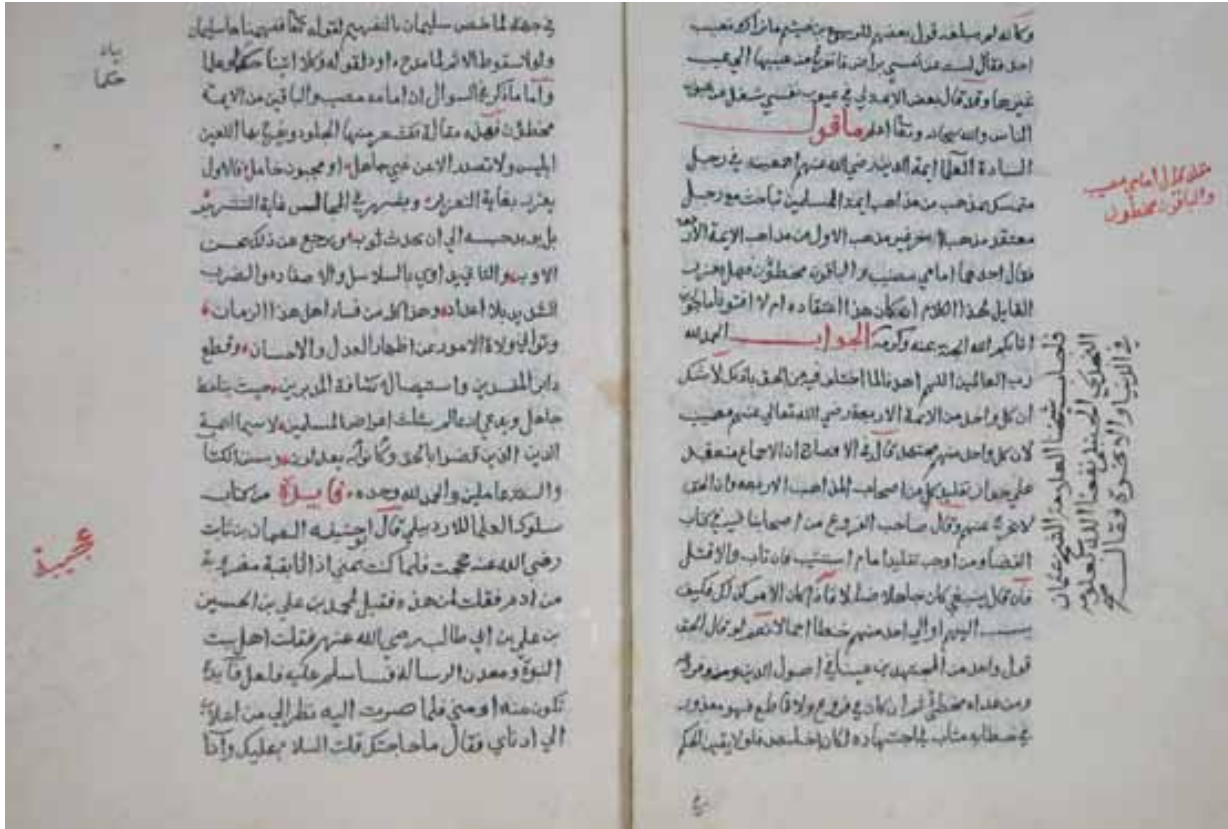 وكأنه لم يبلغه قول بعضهم للربيع بن خيثم ما نراك تعيب
احد فقال لست عن نفسي براض فاتفرغ من عيبها الى عيب
غيرها وقد قال بعض الايمة لي في عيوب نفسي شغل عن عيوب
الناس والله سبحانه وتعا اعلم ما قول
السادة العلما ايمة الدين رضي الله عنهم اجمعين في رجل
متمسك بمذهب من مذاهب ايمة المسلمين تباحث مع رجل
معتقد مذهبا اخر غير مذهب الاول من مذاهب الايمة الاربعة
فقال احدهما امامي مصيب والباقون مخطؤن فهل يعزر
القايل لهذا الكلام اذا كان هذا اعتقاده ام لا افتونا ماجورين
اثابكم الله الجنة بمنه وكرمه الجواب الحمد لله
رب العالمين اللهم اهدنا لما اختلف فيه من الحق باذنك لا شك
ان كل واحد من الايمة الاربعة رضي الله تعالى عنهم مصيب
لان كل واحد منهم مجتهد قال في الافصاح ان الاجماع منعقد
على جواز تقليد كل من اصحاب المذاهب الاربعة وان الحق
لا يخرج عنهم وقال صاحب الفروع من اصحابنا فيه في كتاب
القضا ومن اوجب تقليد امام استتيب فان تاب والا قتل
فان قال ينبغي كان جاهلا ضالا فاذا كان الامر كذلك فكيف
ينسب اليهم او الى احد منهم خطا اجمالا نعم لو قال الحق
قول واحد من المجتهدين عينا في اصول الدين وفروعه
ومن عداه مخطئ ثم ان كان في فروع ولا قاطع فهو معذور
في خطايه مثاب في اجتهاده
قلت قال امامي مصيب
والباقون مخطون
العلامة الشيخ عثمان
النجدي الحنبلي نفعنا الله بعلومه
في الدنيا والاخرة فقال
في جهة لما خص سليمان بالتفهيم لقوله تعا ففهمناها سليمان
ولولا سقوط الاثم لما مدح داود لقوله وكلا اتينا حكما وعلما
واما ما ذكر في السوال ان امامه مصيب والباقين من الايمة
مخطؤن فهذه مقالة تقشعر منها الجلود ويفرح بها اللعين
ابليس ولا تصدر الا عن غبي جاهل او مجنون خامل فالاول
يعزر بغاية التعزير ويشهر في المجالس غاية التشهير
بل يديد حبسه الى ان يحدث توبه ويرجع عن ذلك بحسن
الاوبه والثاني يداوي بالسلاسل والاصفاد والضرب
الشديد بلا اعداد وهذا كله من فساد اهل هذا الزمان
وتواني ولاة الامور عن اظهار العدل والاحسان وقطع
دابر المفسدين واستيصال كافة المدبرين حيث
جاهل ويدعي انه عالم بثلب اعراض المسلمين لاسيما ايمة
الدين الذين قضوا بالحق وكانوا به يعدلون وبسنن الكتاب
والسنة عاملين والحمد لله وحده فايدة من كتاب
سلوك العلما للاردبيلي قال ابو حنيفه النعمان بن ثابت
رضي الله عنه حججت فلما كنت بمنى اذا انا بقبة مضروبة
من ادم فقلت لمن هذه فقيل لمحمد بن علي بن الحسين
بن علي بن ابي طالب رضي الله عنهم فقلت اهل بيت
النبوة ومعدن الرسالة فسا سلم عليه فلعل فايدة
تكون منه او مني فلما صرت اليه نظر الي من اعلاي
الى ادناي فقال ما حاجتك قلت السلام عليك وانا
بيان
حكما
عجيبة